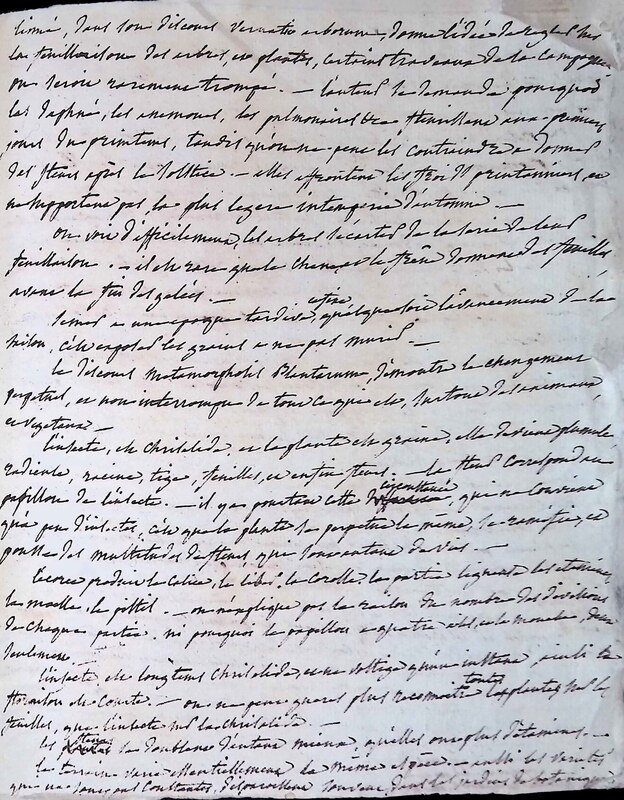 linné, dans son discours vernatio arborum, donne l'idée de regler sur
la feuillaison des arbres, et plantes, certains travaux de la campagne
on seroit rarement trompé. — l'auteur se demande pourquoi
les daphné, les anemones, les pulmonaires &c fleurissent aux premiers
jours du printems, tandis qu'on ne peut les contraindre a donner
des fleurs après le solstice. — elles affrontent les froids printanniers, et
ne supportent pas la plus legere intemperie d'automne —
on voit difficilement, les arbres s'ecarter de la serie de leur
feuillaison. — il est rare que le chene, et le frêne donnent des feuilles
avant la fin des gelées. —
semer a une epoque tardive, quelque soit l'avancement de la
saison, c'est exposer les grains a ne pas murir. —
le discours metamorphosis plantarum, démontre le changement
perpetuel, et non interrompu de tout ce qui est, surtout des animaux
et vegetaux —
l'insecte, est chrisalide, et la plante est graine, elle devient plumule
radicule, racine, tige, feuilles, et enfin fleurs. — la fleur correspond au
papillon de l'insecte. — il y a pourtant cette circonstance, qui ne convient
qu'a peu d'insectes, c'est que la plante se perpetue la même, se ramifie, et
pousse des multitudes de fleurs, qui sont autant de vies. —
l'ecorce produit le calice, le liber, la corolle, la partie ligneuse les etamines
la moelle, le pistil. — on n'explique pas la raison du nombre des divisions
de chaque partie, ni pourquoi le papillon a quatre ailes, et la mouche, deux
seulement —
l'insecte est longtems chrisalide, et ne voltige qu'un instant, aussi la
floraison est courte. — on ne peut gueres plus reconnoitre toutes les plantes sur les
feuilles, que l'insecte sur la chrisalide. —
les fleurs se doublent d'autant mieux, qu'elles ont plus d'etamines. —
le terrain varie essentiellement la même espece. — aussi les varietés
que ne sont pas constantes, dans les jardins de botanique